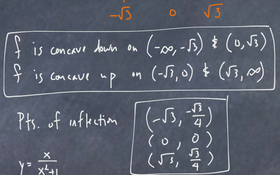 -√3 0 √3
f is concave down on (-∞, -√3) & (0, √3)
f is concave up on (-√3, 0) & (√3, ∞)
Pts. of inflection
(-√3, -√3/4)
(0, 0)
(√3, √3/4)
y = x/(x²+1)